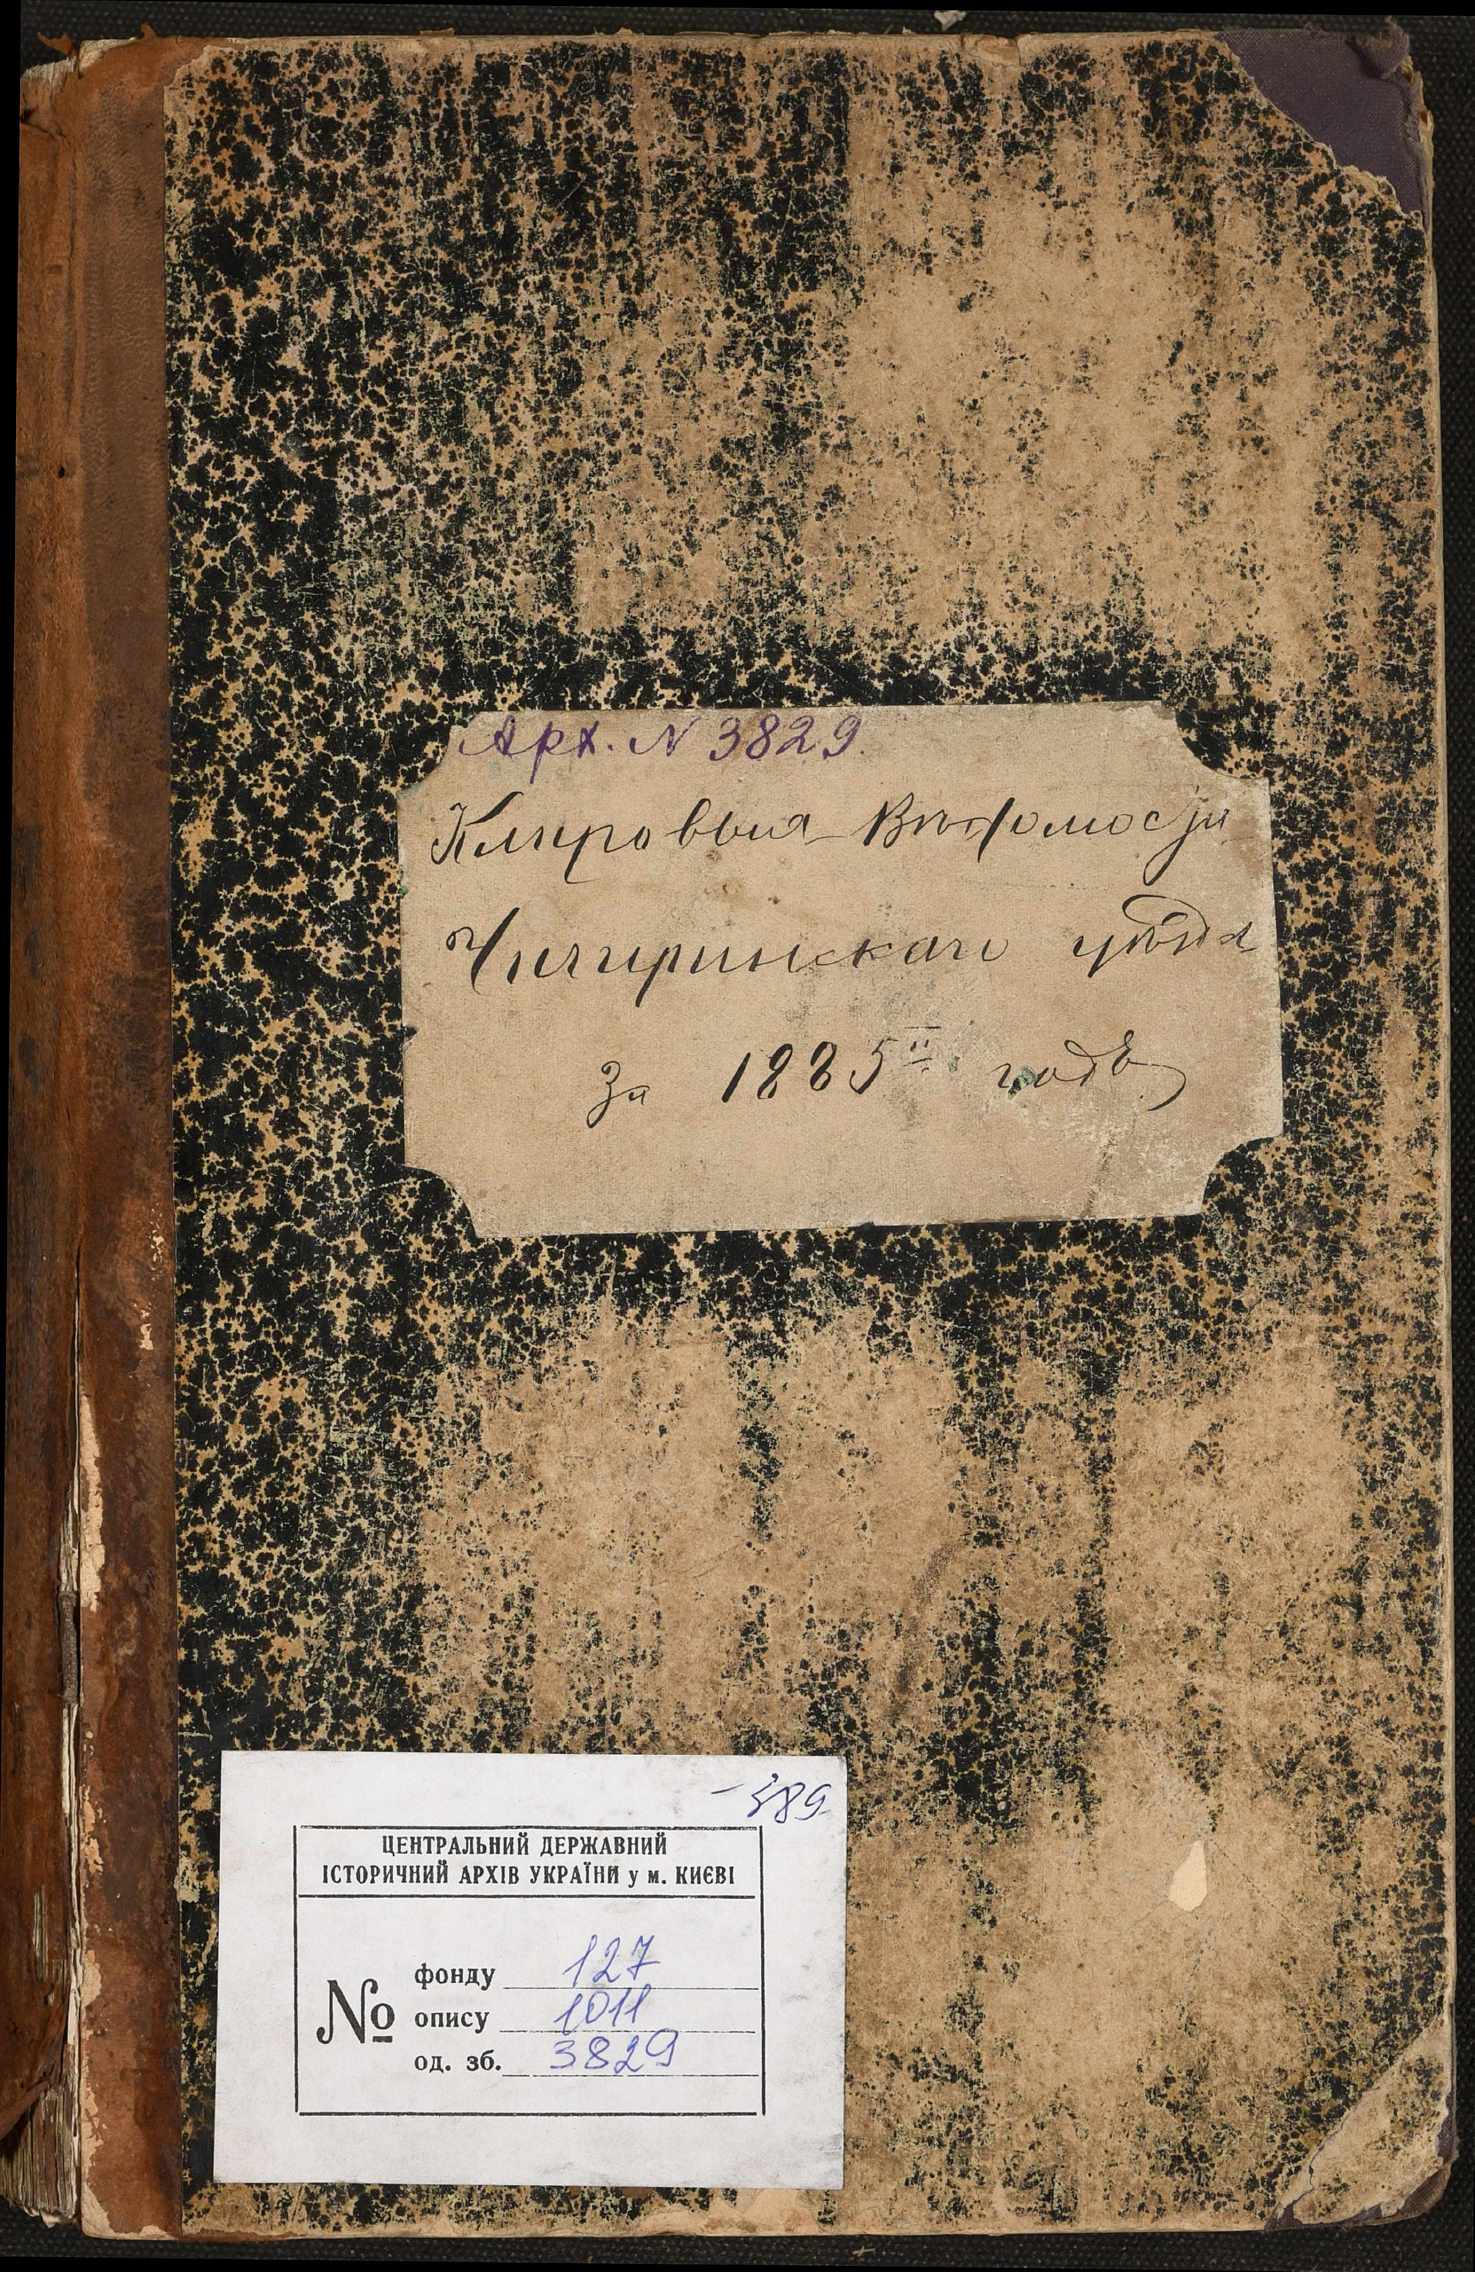 Арх. N 3829.
Клировыя Вѣдомости
Чигиринскаго уѣзда
За 1885й годъ
-389
ЦЕНТРАЛЬНИЙ ДЕРЖАВНИЙ
ІСТОРИЧНИЙ АРХІВ УКРАЇНИ у м. КИЄВІ
№
фонду 127
опису 1011
од. зб. 3829